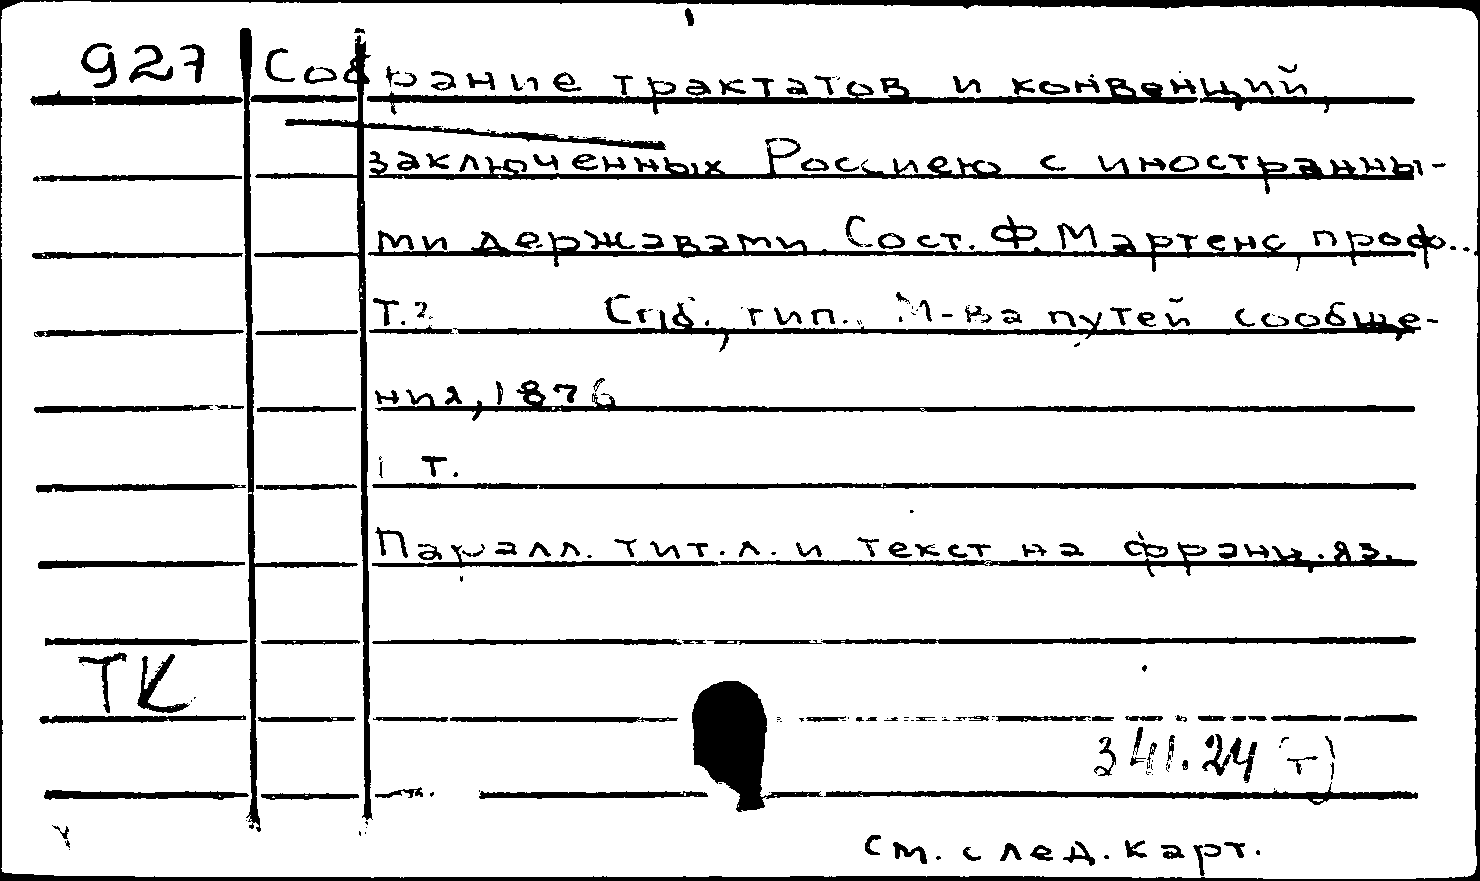 927 Собрание трактатов и конвенций,
заключенных Россиею с иностранны-
ми державами. Сост. Ф. Мартенс, проф...
Т.2 Спб., тип., М-ва путей сообще-
ния, 1876
1 т.
Паралл. тит. л. и текст на франц. яз.
ТК
341.24 (т)
см. след. карт.